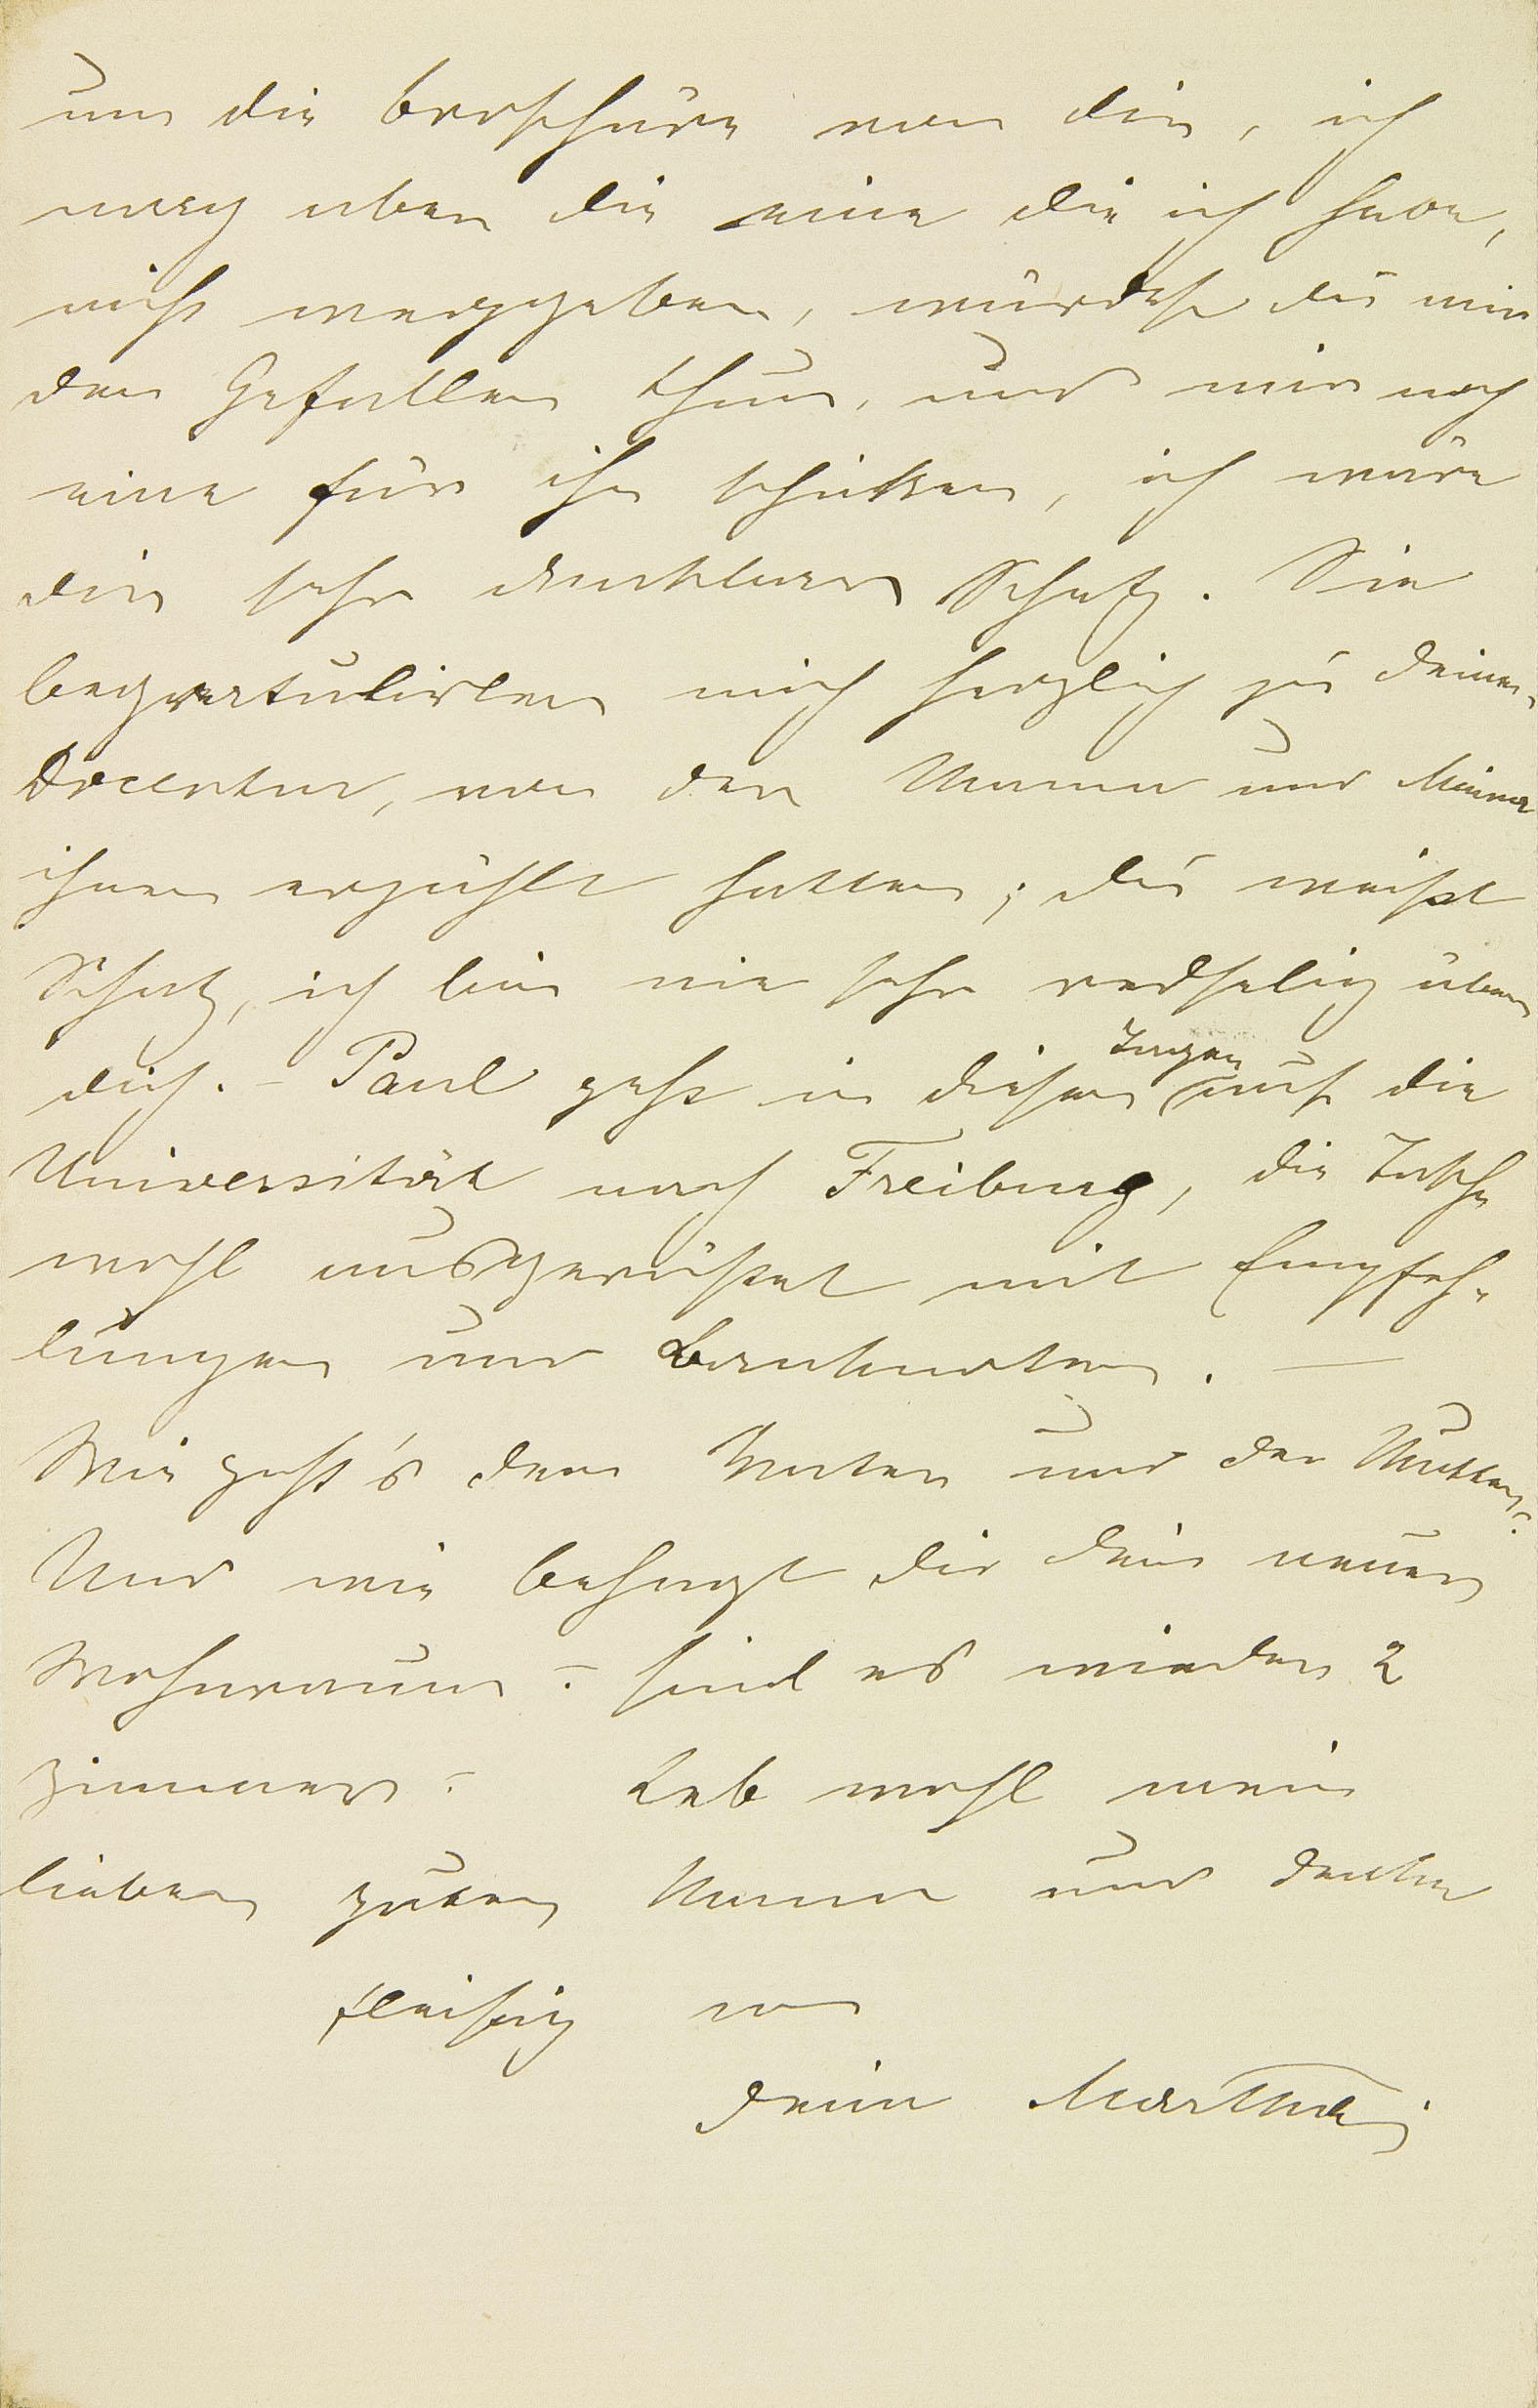 um die Broschüre von dir, ich
mag aber die eine die ich habe,
nicht weggeben, würdest du mir
den Gefallen thun, und mir noch
eine für ihn schicken, ich wäre
dir sehr dankbar Schatz. Sie
begratulirten mich herzlich zu deiner
Docentur, von der Mama und Minna
ihnen erzählt hatten; du weißt
Schatz, ich bin nie sehr redselig über
dich. – Paul geht in diesen Tagen auf die
Universität nach Freiburg, die Tasche
wohl ausgerüstet mit Empfeh-
lungen und Banknoten. —
Wie geht's dem Vater und der Mutter?
Und wie behagt dir dein neuer
Wohnraum? sind es wieder 2
Zimmer? Leb wohl mein
lieber guter Mann und denke
fleißig an
deine Martha